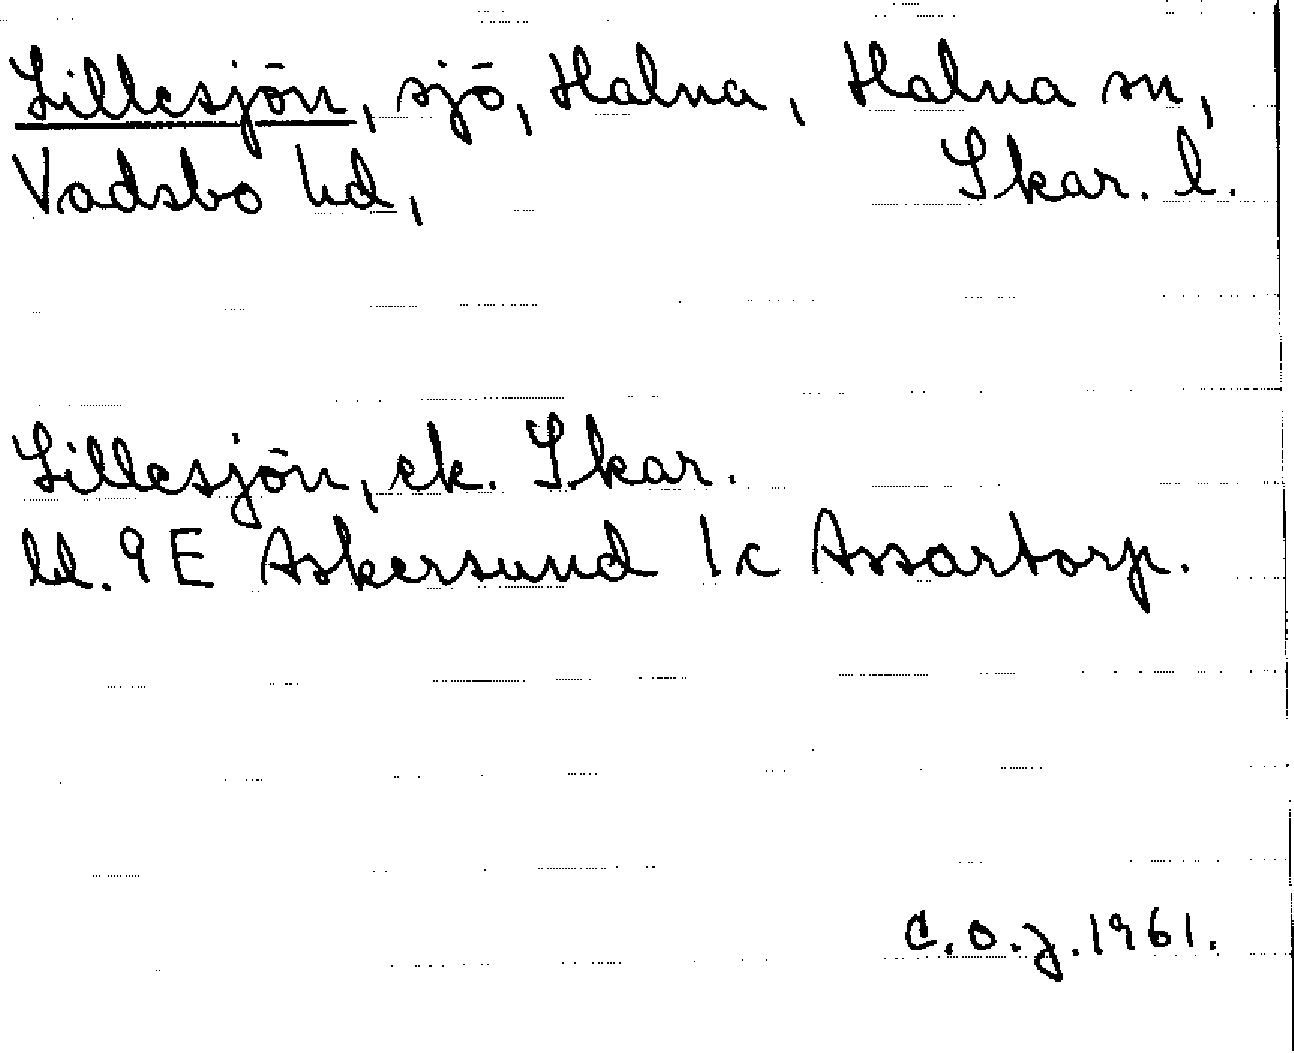 Lillesjön, sjö, Halna, Halna sn,
Vadsbo hd, Skar. l.
Lillesjön, ek. Skar.
bl. 9E Askersund 1c Assartorp.
C.O.J. 1961.